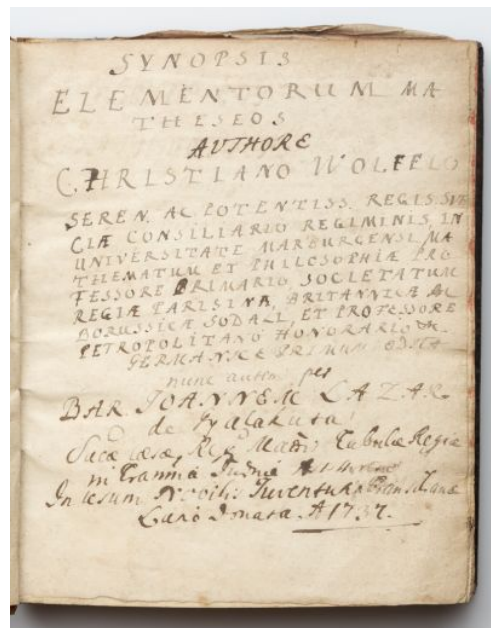 SYNOPSIS
ELEMENTORUM MA
THESEOS
AUTHORE
CHRISTIANO WOLFFIO
SEREN. AC POTENTISS. REGIS SUE
CIÆ CONSILIARIO REGIMINIS, IN
UNIVERSITATE MARBURGENSI, MA
THEMATUM ET PHILOSOPHIÆ PRO
FESSORE PRIMARIO SOCIETATUM
REGIÆ PARISINÆ, BRITANNICÆ AC
BORUSSICÆ SODALI, ET PROFESSORE
PETROPOLITANO HONORARIO
GERMANICE PRIMUM EDITA
nunc per
BAR. JOANNEM LAZAR
de Gyalakuta
Tabulæ Regiæ
in
In usum Nobilis Juventutis
donata A 1737.